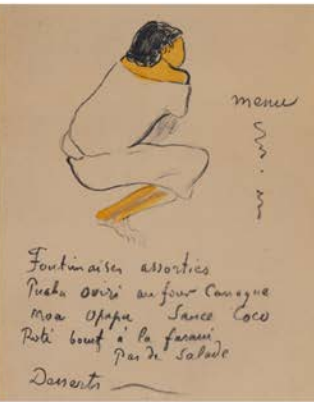 menu
Fontinaises assorties
Puaha oviri au four Canaque
moa opapa Sauce Coco
Roti bœuf à la farani
Pas de Salade
Desserts